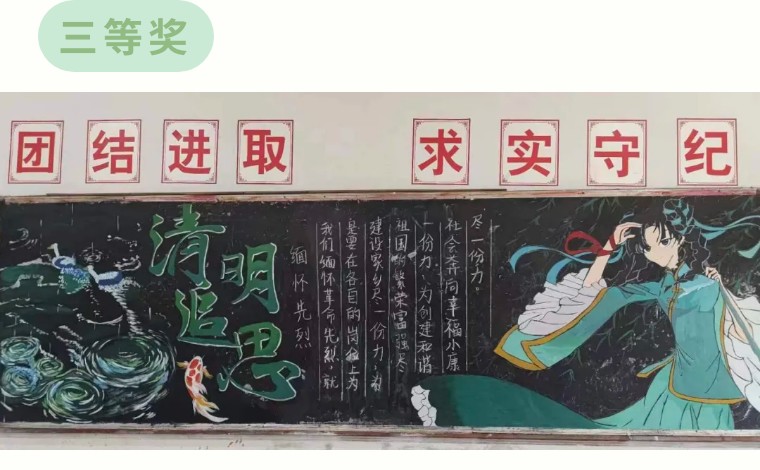 三等奖
团结进取 求实守纪
清明
追思
缅怀先烈
我们缅怀革命先烈，就
是要在各自的岗位上为
建设家乡尽一份力，为
祖国的繁荣富强尽
一份力，为创建和谐
社会奔向幸福小康
尽一份力。